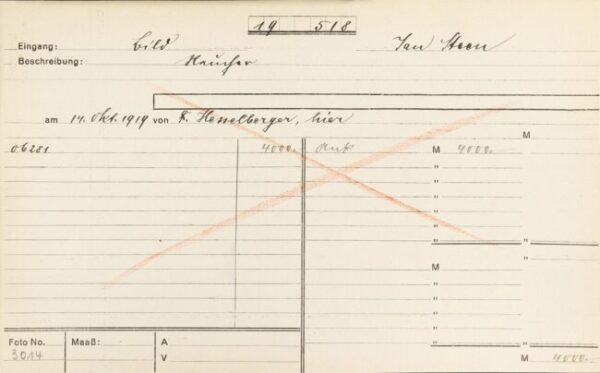 19 518
Eingang: Bild Jan Steen
Beschreibung: Raucher
am 14. Okt. 1919 von F. Hesselberger, hier
M
06281 4000.- Ank M 4000.-
"
"
"
"
"
" "
M
"
"
"
"
" "
Foto No. Maaß: A
3014 V
M 4000.-